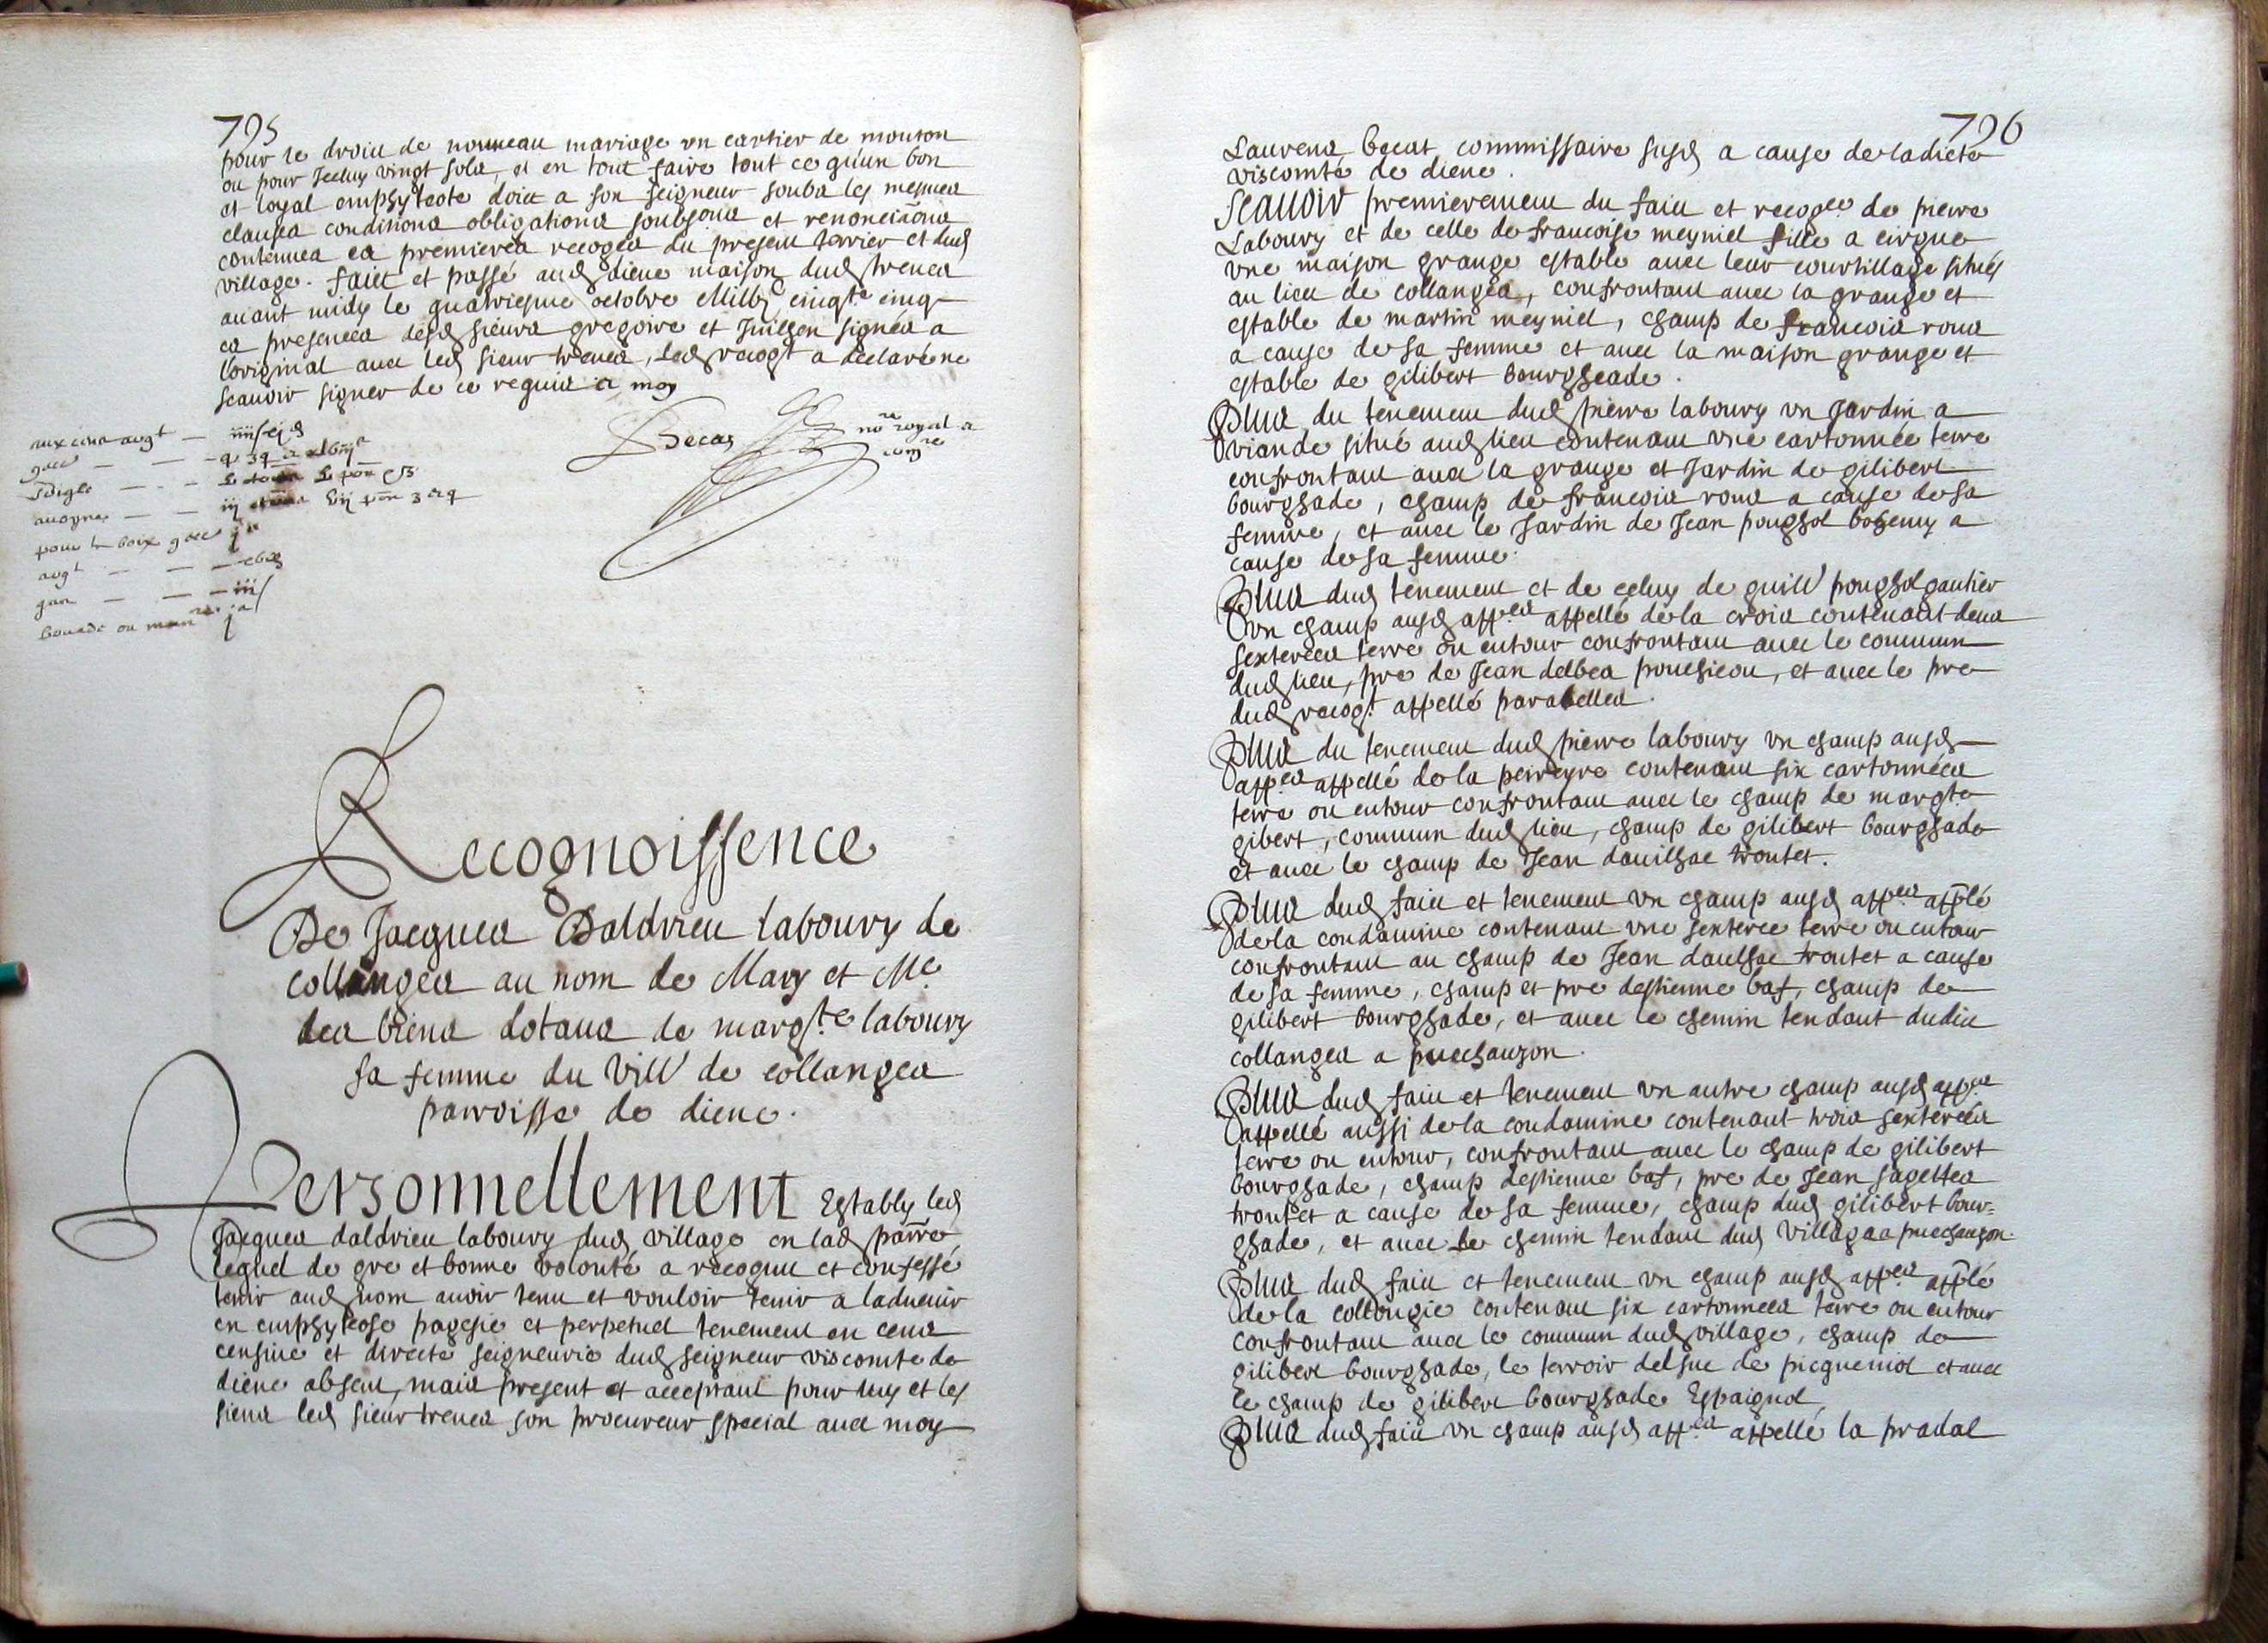 795
pour le droit de nouveau mariage un cartier de mouton
ou pour Jceluy vingt solz, et en tout faire tout ce qu'un bon
et loyal emphyteote doict a son seigneur soubz les mesmes
clauses conditions obligations soubsons et renonciãons
contenues ez premieres recogces du present terrier et dud
village. faict et passé aud diene maison dud trenes
avant midy le quatriesme octobre Milbjc cinqte cinq
ez presences desd sieurs gregoire et Juillen signés a
l'original avec led sieur trenes, led recogt a declaré ne
scavoir signer de ce requis et moy
Becas no.re royal et comre
aux cens argt —
gées — — —
Seigle — — —
avoyne — —
pour le boix gées
argt — — —
geis — — — iii s
bouade ou man
Recognoissence
De Jacques Daldrieu laboury de
collanges au nom de Mary et Me
des biens dotaux de margte laboury
sa femme du vill' de collanges
parroisse de diene.
Personnellement Estably led
Jacques daldrieu laboury dud village en lad parre
lequel de gre et bonne volonté a recognu et confessé
tenir aud nom avoir tenu et vouloir tenir a ladvenir
en emphyteose pagesie et perpetuel tenement en cens
censive et directe seigneurie dud seigneur viscomte de
diene absent, mais present et acceptant pour luy et les
siens led sieur trenes son procureur special avec moy
796
Laurens becat commissaire susd a cause de ladicte
viscomté de diene.
Scavoir premierement du faict et recogce de pierre
Laboury et de celle de francoise meyniel fille a cirgue
une maison grange estable avec leur courtillage situés
au lieu de collanges, confrontant avec la grange et
estable de martin meyniel, champ de francois roux
a cause de sa femme et avec la maison grange et
estable de gilibert bourgheade.
Plus du tenement dud pierre laboury un Jardin a
viande situé aud lieu contenant une cartonnée terre
confrontant avec la grange et Jardin de gilibert
bourghade, champ de francois roux a cause de sa
femme, et avec le Jardin de Jean poughol bohemy a
cause de sa femme.
Plus dud tenement et de celuy de guill' poughol gautier
un champ ausd appces appellé de la croix contenant deux
sexterées terre ou entour confrontant avec le commun
dud lieu, pre de Jean delbes pouchieou, et avec le pre
dud recogt appellé parabelles.
Plus du tenement dud pierre laboury un champ ausd
appces appellé de la perreyre contenant six cartonnées
terre ou entour confrontant avec le champ de margte
gibert, commun dud lieu, champ de gilibert bourghade
et avec le champ de Jean dauilhac troutet.
Plus dud faict et tenement un champ ausd appces applé
de la condamine contenant une sexterée terre ou entour
confrontant au champ de Jean daulhac troutet a cause
de sa femme, champ et pre destienne baf, champ de
gilibert bourghade, et avec le chemin tendant dudict
collanges a puechauzon.
Plus dud faict et tenement un autre champ ausd appces
appellé aussi de la condamine contenant trois sexterées
terre ou entour, confrontant avec le champ de gilibert
bourghade, champ destienne baf, pre de Jean sagettes
troutet a cause de sa femme, champ dud gilibert bour=
ghade, et avec le chemin tendant dud village a puechauzon.
Plus dud faict et tenement un champ ausd appces applé
de la collongie contenant six cartonnées terre ou entour
confrontant avec le commun dud village, champ de
gilibert bourghade, le terroir del suc de picqueniol et avec
le champ de gilibert bourghade Espaignol
Plus dud faict un champ ausd appces appellé la pradal